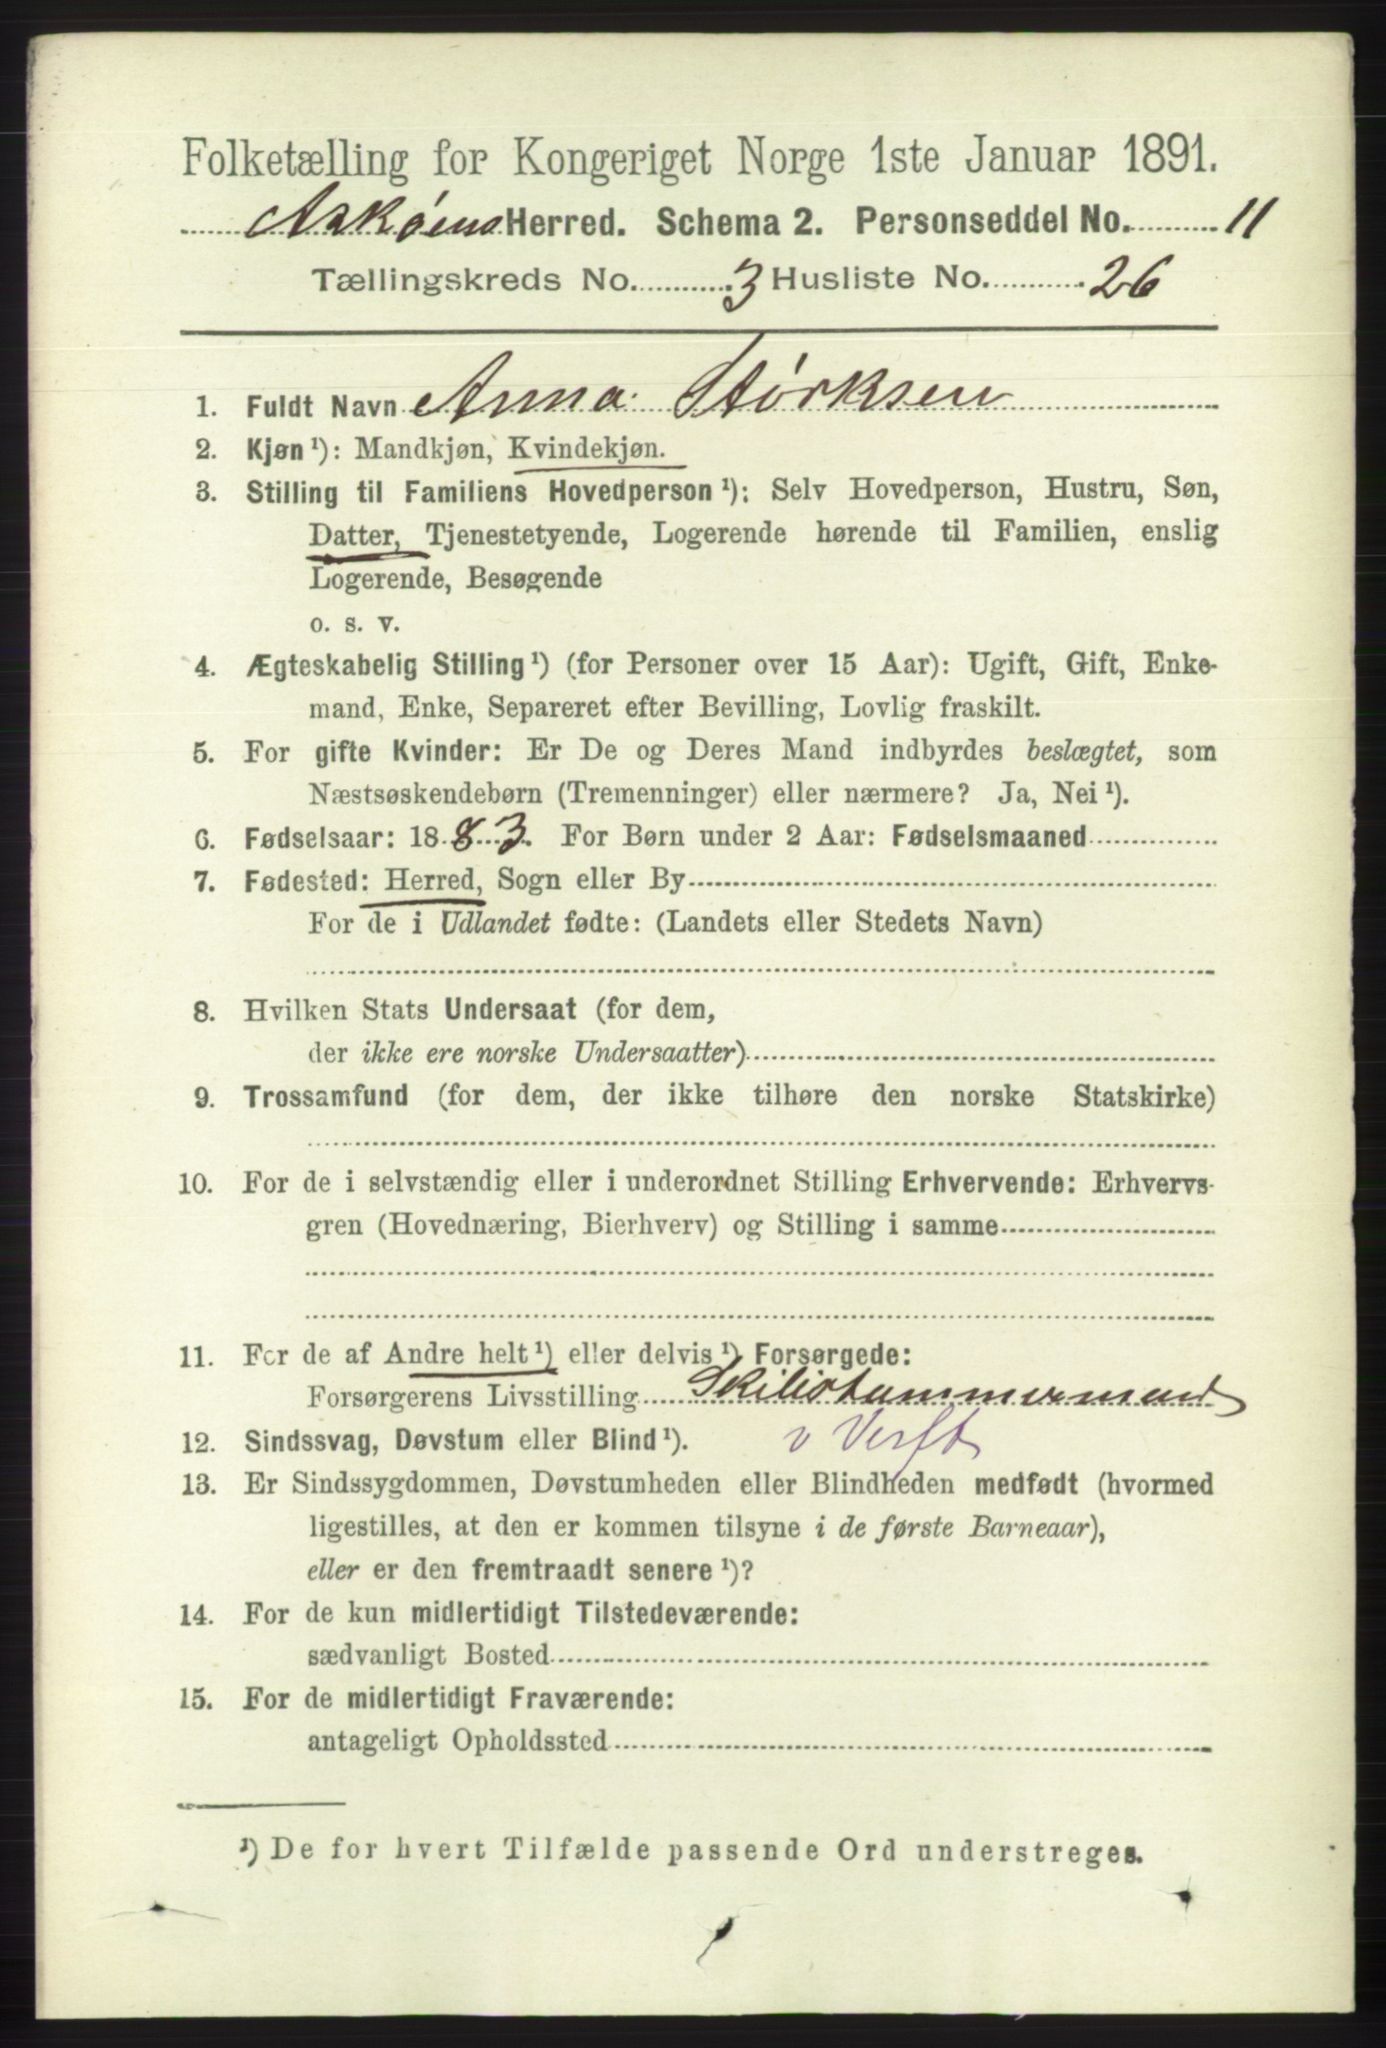 Folketælling for Kongeriget Norge 1ste Januar 1891.
Askøens Herred. Schema 2. Personseddel No. 11
Tællingskreds No. 3 Husliste No. 26
1. Fuldt Navn Anna Størksen
2. Kjøn ¹): Mandkjøn, Kvindekjøn.
3. Stilling til Familiens Hovedperson ¹): Selv Hovedperson, Hustru, Søn,
Datter, Tjenestetyende, Logerende hørende til Familien, enslig
Logerende, Besøgende
o. s. v.
4. Ægteskabelig Stilling ¹) (for Personer over 15 Aar): Ugift, Gift, Enke-
mand, Enke, Separeret efter Bevilling, Lovlig fraskilt.
5. For gifte Kvinder: Er De og Deres Mand indbyrdes beslægtet, som
Næstsøskendebørn (Tremenninger) eller nærmere? Ja, Nei ¹).
6. Fødselsaar: 1883. For Børn under 2 Aar: Fødselsmaaned
7. Fødested: Herred, Sogn eller By
For de i Udlandet fødte: (Landets eller Stedets Navn)
8. Hvilken Stats Undersaat (for dem,
der ikke ere norske Undersaatter)
9. Trossamfund (for dem, der ikke tilhøre den norske Statskirke)
10. For de i selvstændig eller i underordnet Stilling Erhvervende: Erhvervs-
gren (Hovednæring, Bierhverv) og Stilling i samme
11. For de af Andre helt ¹) eller delvis ¹) Forsørgede:
Forsørgerens Livsstilling Skibstummermand
v Verft
12. Sindssvag, Døvstum eller Blind ¹).
13. Er Sindssygdommen, Døvstumheden eller Blindheden medfødt (hvormed
ligestilles, at den er kommen tilsyne i de første Barneaar),
eller er den fremtraadt senere ¹)?
14. For de kun midlertidigt Tilstedeværende:
sædvanligt Bosted
15. For de midlertidigt Fraværende:
antageligt Opholdssted
¹) De for hvert Tilfælde passende Ord understreges.